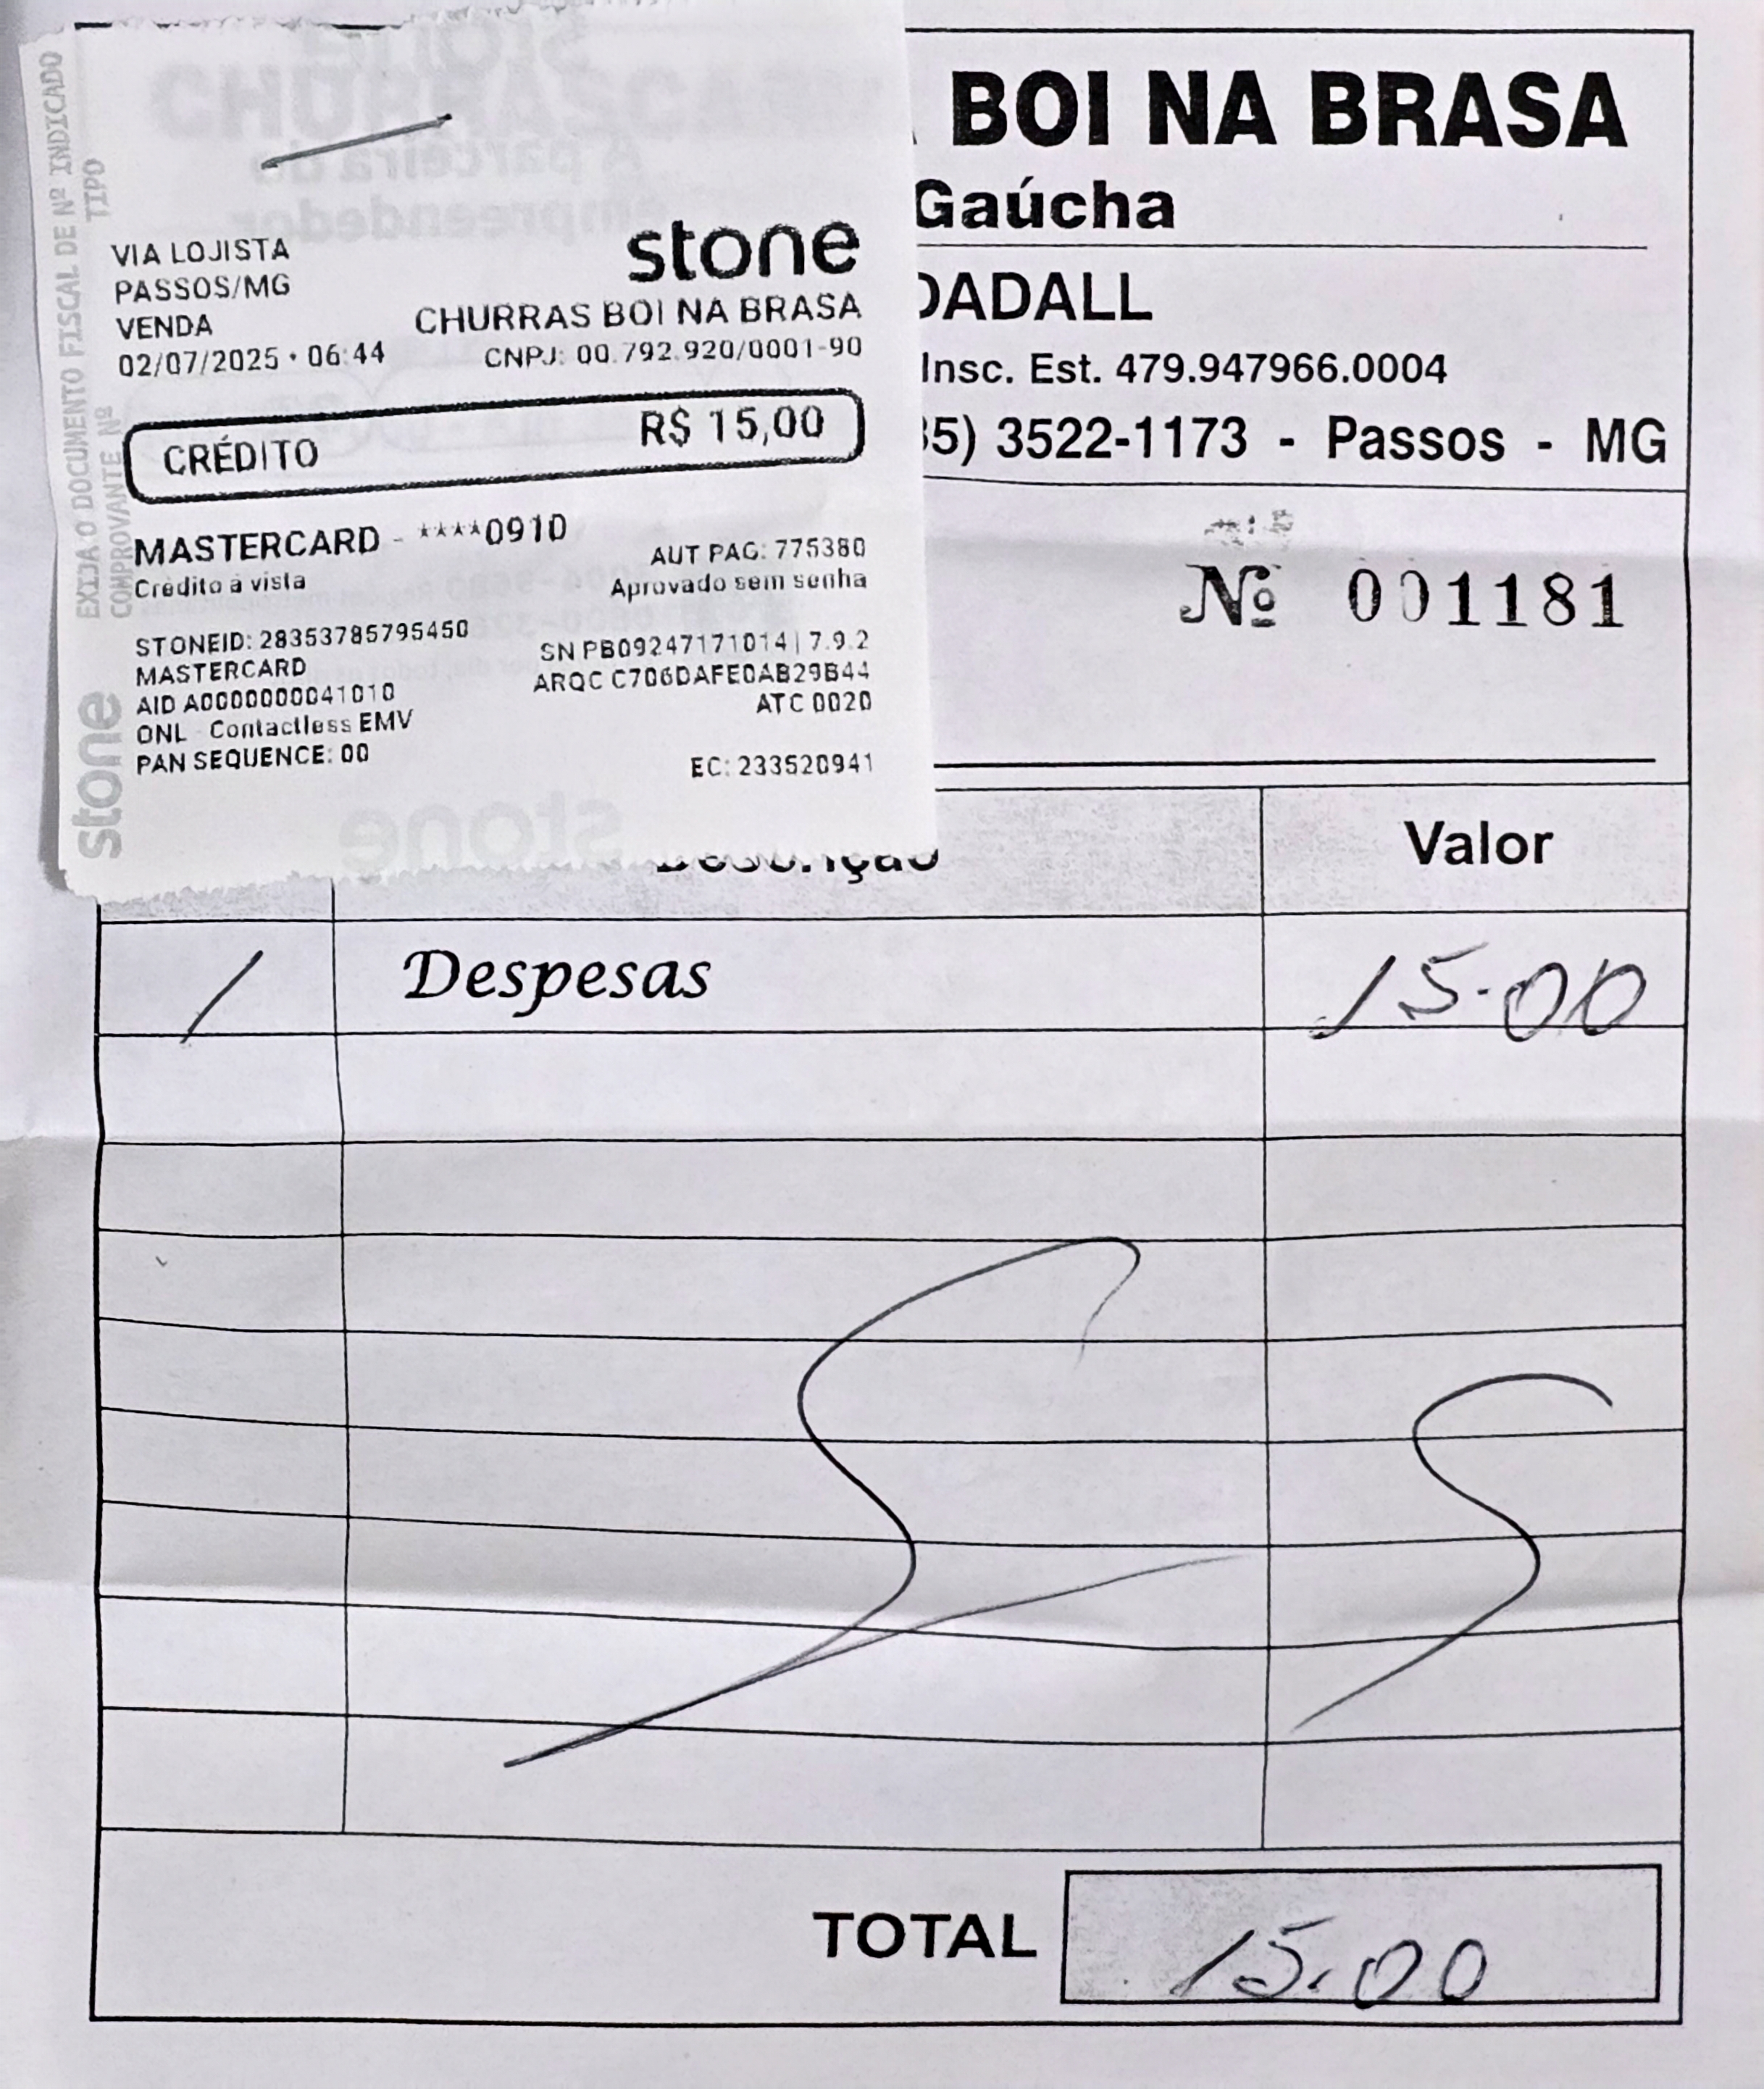 EXIJA O DOCUMENTO FISCAL DE Nº INDICADO
COMPROVANTE Nº TIPO
stone
VIA LOJISTA
PASSOS/MG
VENDA
02/07/2025 • 06:44
stone
CHURRAS BOI NA BRASA
CNPJ: 00.792.920/0001-90
CRÉDITO R$ 15,00
MASTERCARD - ****0910
Crédito à vista
AUT PAG: 775380
Aprovado sem senha
STONEID: 28353785795450
MASTERCARD
AID A0000000041010
ONL - Contactless EMV
PAN SEQUENCE: 00
SN PB09247171014 | 7.9.2
ARQC C706DAFE0AB29B44
ATC 0020
EC: 233520941
BOI NA BRASA
Gaúcha
DADALL
Insc. Est. 479.947966.0004
35) 3522-1173 - Passos - MG
Nº 001181
Descrição Valor
1 Despesas 15.00
TOTAL 15.00